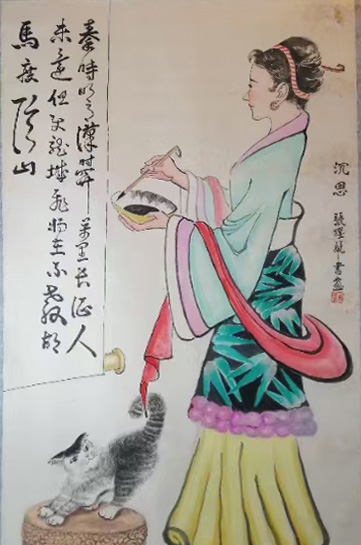 秦時明月漢時關萬里長征人
未還但使龍城飛將在不教胡
馬度陰山
沉思
張 書畫